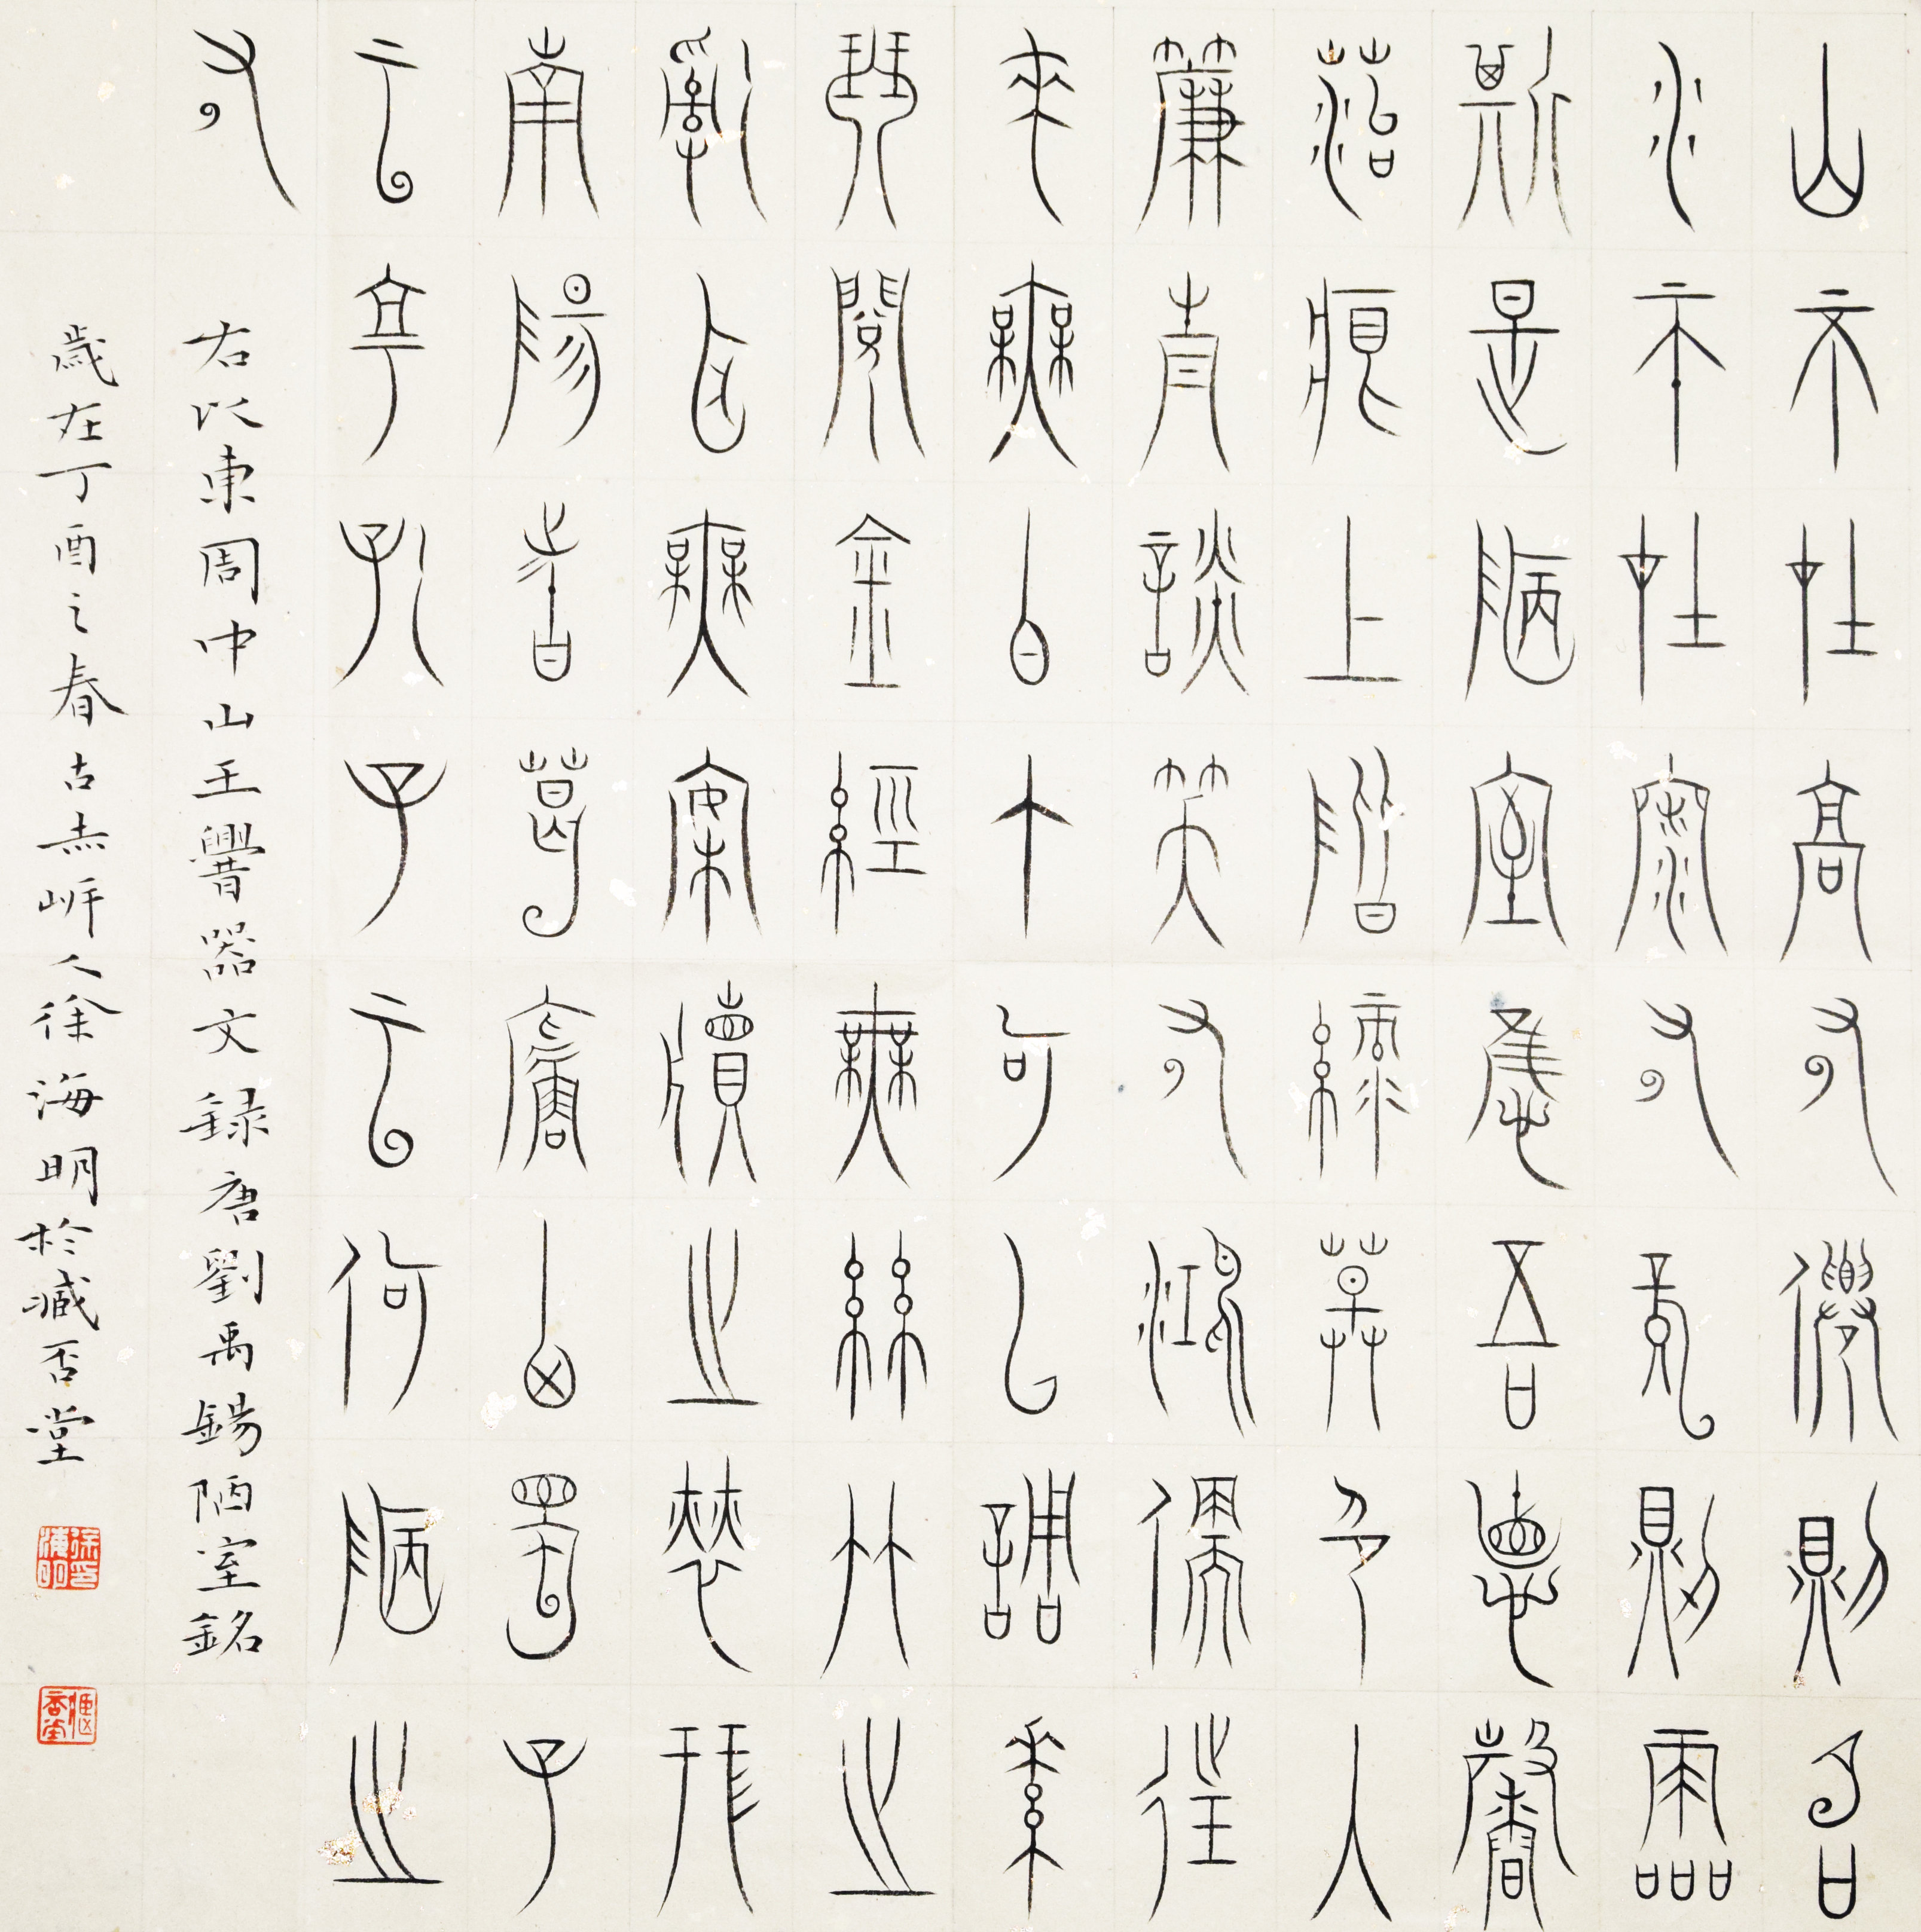 山不在高有僊則名
水不在深有龍則靈
斯是陋室惟吾德馨
苔痕上階綠草色入
簾青談笑有鴻儒往
來無白丁可以調素
琴閱金經無絲竹之
亂耳無案牘之勞形
南陽諸葛廬西蜀子
云亭孔子云何陋之
有
右以東周中山王器文録唐劉禹錫陋室銘
歲在丁酉之春古赤岍人徐海明於臧否堂
徐海明印
臧否堂